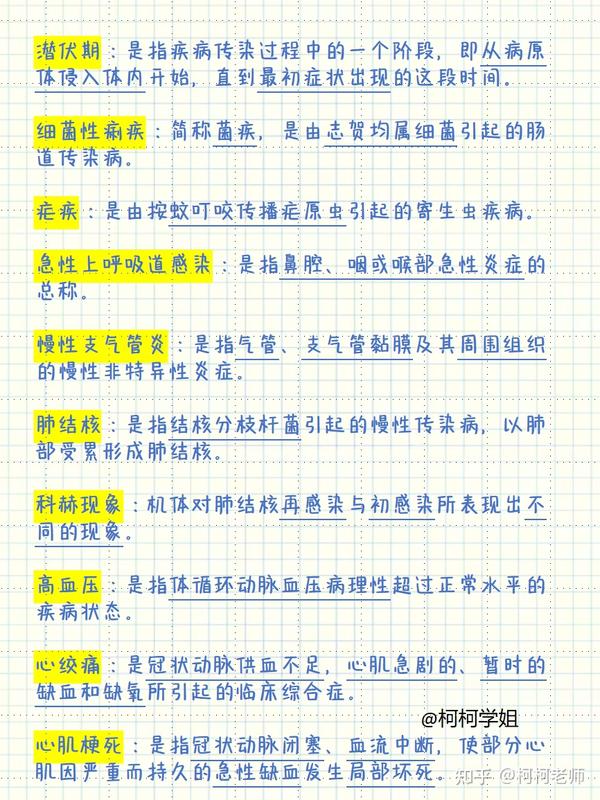 潜伏期：是指疾病传染过程中的一个阶段，即从病原
体侵入体内开始，直到最初症状出现的这段时间。
细菌性痢疾：简称菌疾，是由志贺均属细菌引起的肠
道传染病。
疟疾：是由按蚊叮咬传播疟原虫引起的寄生虫疾病。
急性上呼吸道感染：是指鼻腔、咽或喉部急性炎症的
总称。
慢性支气管炎：是指气管、支气管黏膜及其周围组织
的慢性非特异性炎症。
肺结核：是指结核分枝杆菌引起的慢性传染病，以肺
部受累形成肺结核。
科赫现象：机体对肺结核再感染与初感染所表现出不
同的现象。
高血压：是指体循环动脉血压病理性超过正常水平的
疾病状态。
心绞痛：是冠状动脉供血不足，心肌急剧的、暂时的
缺血和缺氧所引起的临床综合症。
@柯柯学姐
心肌梗死：是指冠状动脉闭塞、血流中断，使部分心
肌因严重而持久的急性缺血发生局部坏死。
知乎 @柯柯老师